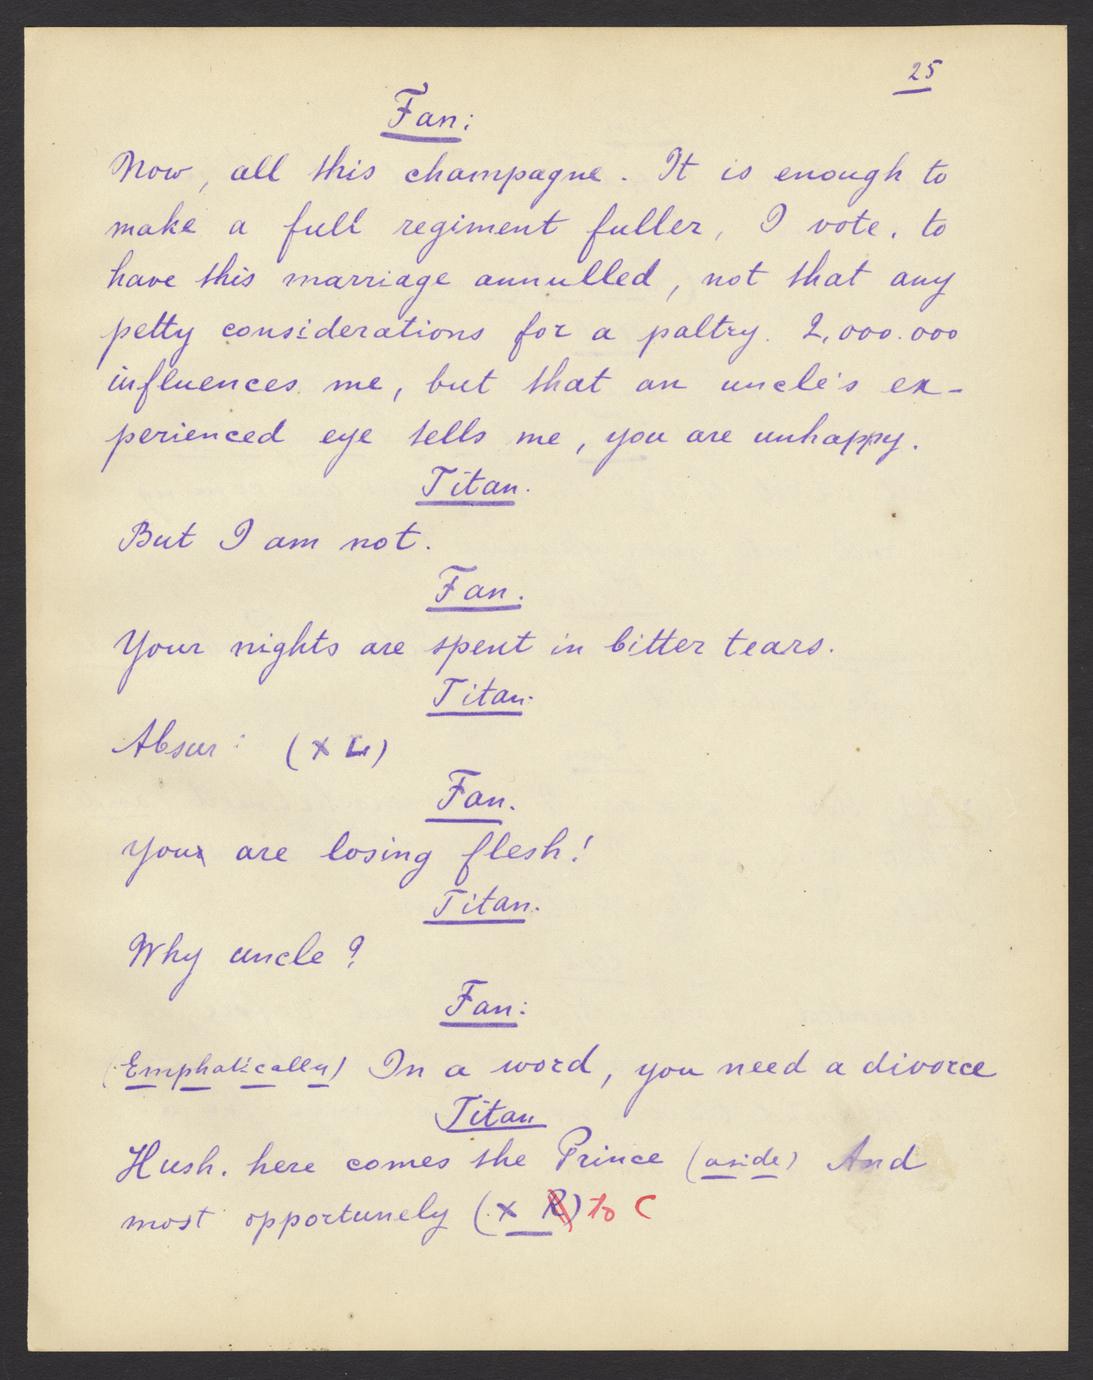 25
Fan:
Now, all this champagne. It is enough to
make a full regiment fuller, I vote, to
have this marriage annulled, not that any
petty considerations for a paltry 2,000.000
influences me, but that an uncle's ex-
perienced eye tells me, you are unhappy.
Titan.
But I am not.
Fan.
Your nights are spent in bitter tears.
Titan.
Absur: (X L)
Fan.
You are losing flesh!
Titan.
Why uncle?
Fan:
(Emphatically) In a word, you need a divorce
Titan
Hush. here comes the Prince (aside) And
most opportunely (X R) to C